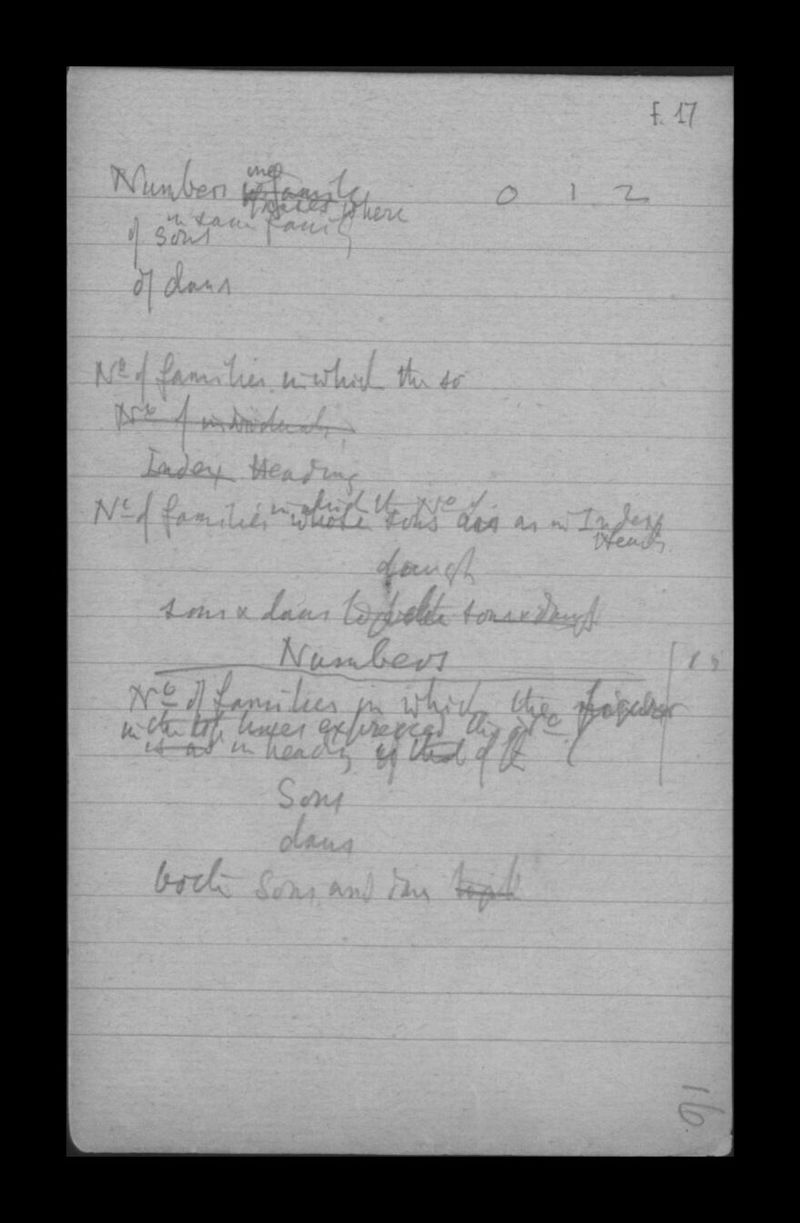 f. 17
Numbers in a family where 0 1 2
in same family
of sons
of daus
No of families in which the so
No of individuals
Index Heading
in which the No of
No of families whose sons as in Index
Head
daugh
sons & daus together sons & daugh
Numbers
No of families in which the figure
in the top lines expressed the No
is as in heading of that of
Sons
daus
both Sons and daus
16